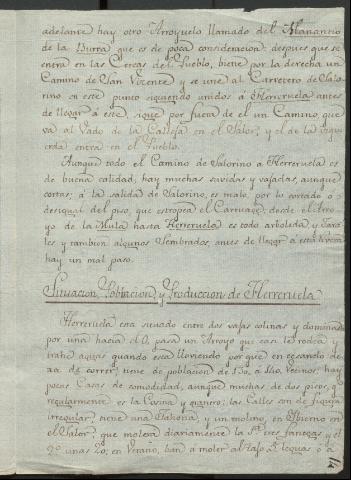 adelante hay otro Arroyuelo llamado del Manantio
de la Burra que es de poca consideracion: despues que se
entra en las Cercas del Pueblo, biene por la derecha un
Camino de San Vicente y se une al Carretero de Valo-
rino en este punto siguiendo unidos á Herreruela antes
de llegar á este, sigue por fuera de el un Camino que
va al Vado de la Calleja en el Salor, y el de la Izqui-
erda entra en el Pueblo.
Aunque todo el Camino de Valorino a Herreruela es
de buena calidad, hay muchas suvidas y vajadas, aunque
cortas; á la salida de Valorino, es malo, por lo cortado o
desigual del piso, que estropea el Carruage, desde el Arro-
yo de la Mula hasta Herreruela es todo arboleda y Jara-
les y tambien algunos sembrados, antes de llegar a esta
hay un mal paso.
Situacion, Poblacion, y Produccion de Herreruela
Herreruela esta situado entre dos vajas colinas y dominado
por una hacia el O, pasa un Arroyo que casi le rodea y
trahe aguas quando esta lloviendo por que en cesando de-
xa de correr; tiene de poblacion de 130, á 140, vecinos; hay
pocas Casas de comodidad, aunque muchas de dos pisos, q.
regularmente es la Cocina y granero; las Calles son de figura
irregular; tiene una Tahona, y un molino, en Ybierno en
el Salor, que molera diariamente la 1ª tres fanegas y el
2º unas 20; en Verano, ban á moler al Tajo 2 leguas ó a